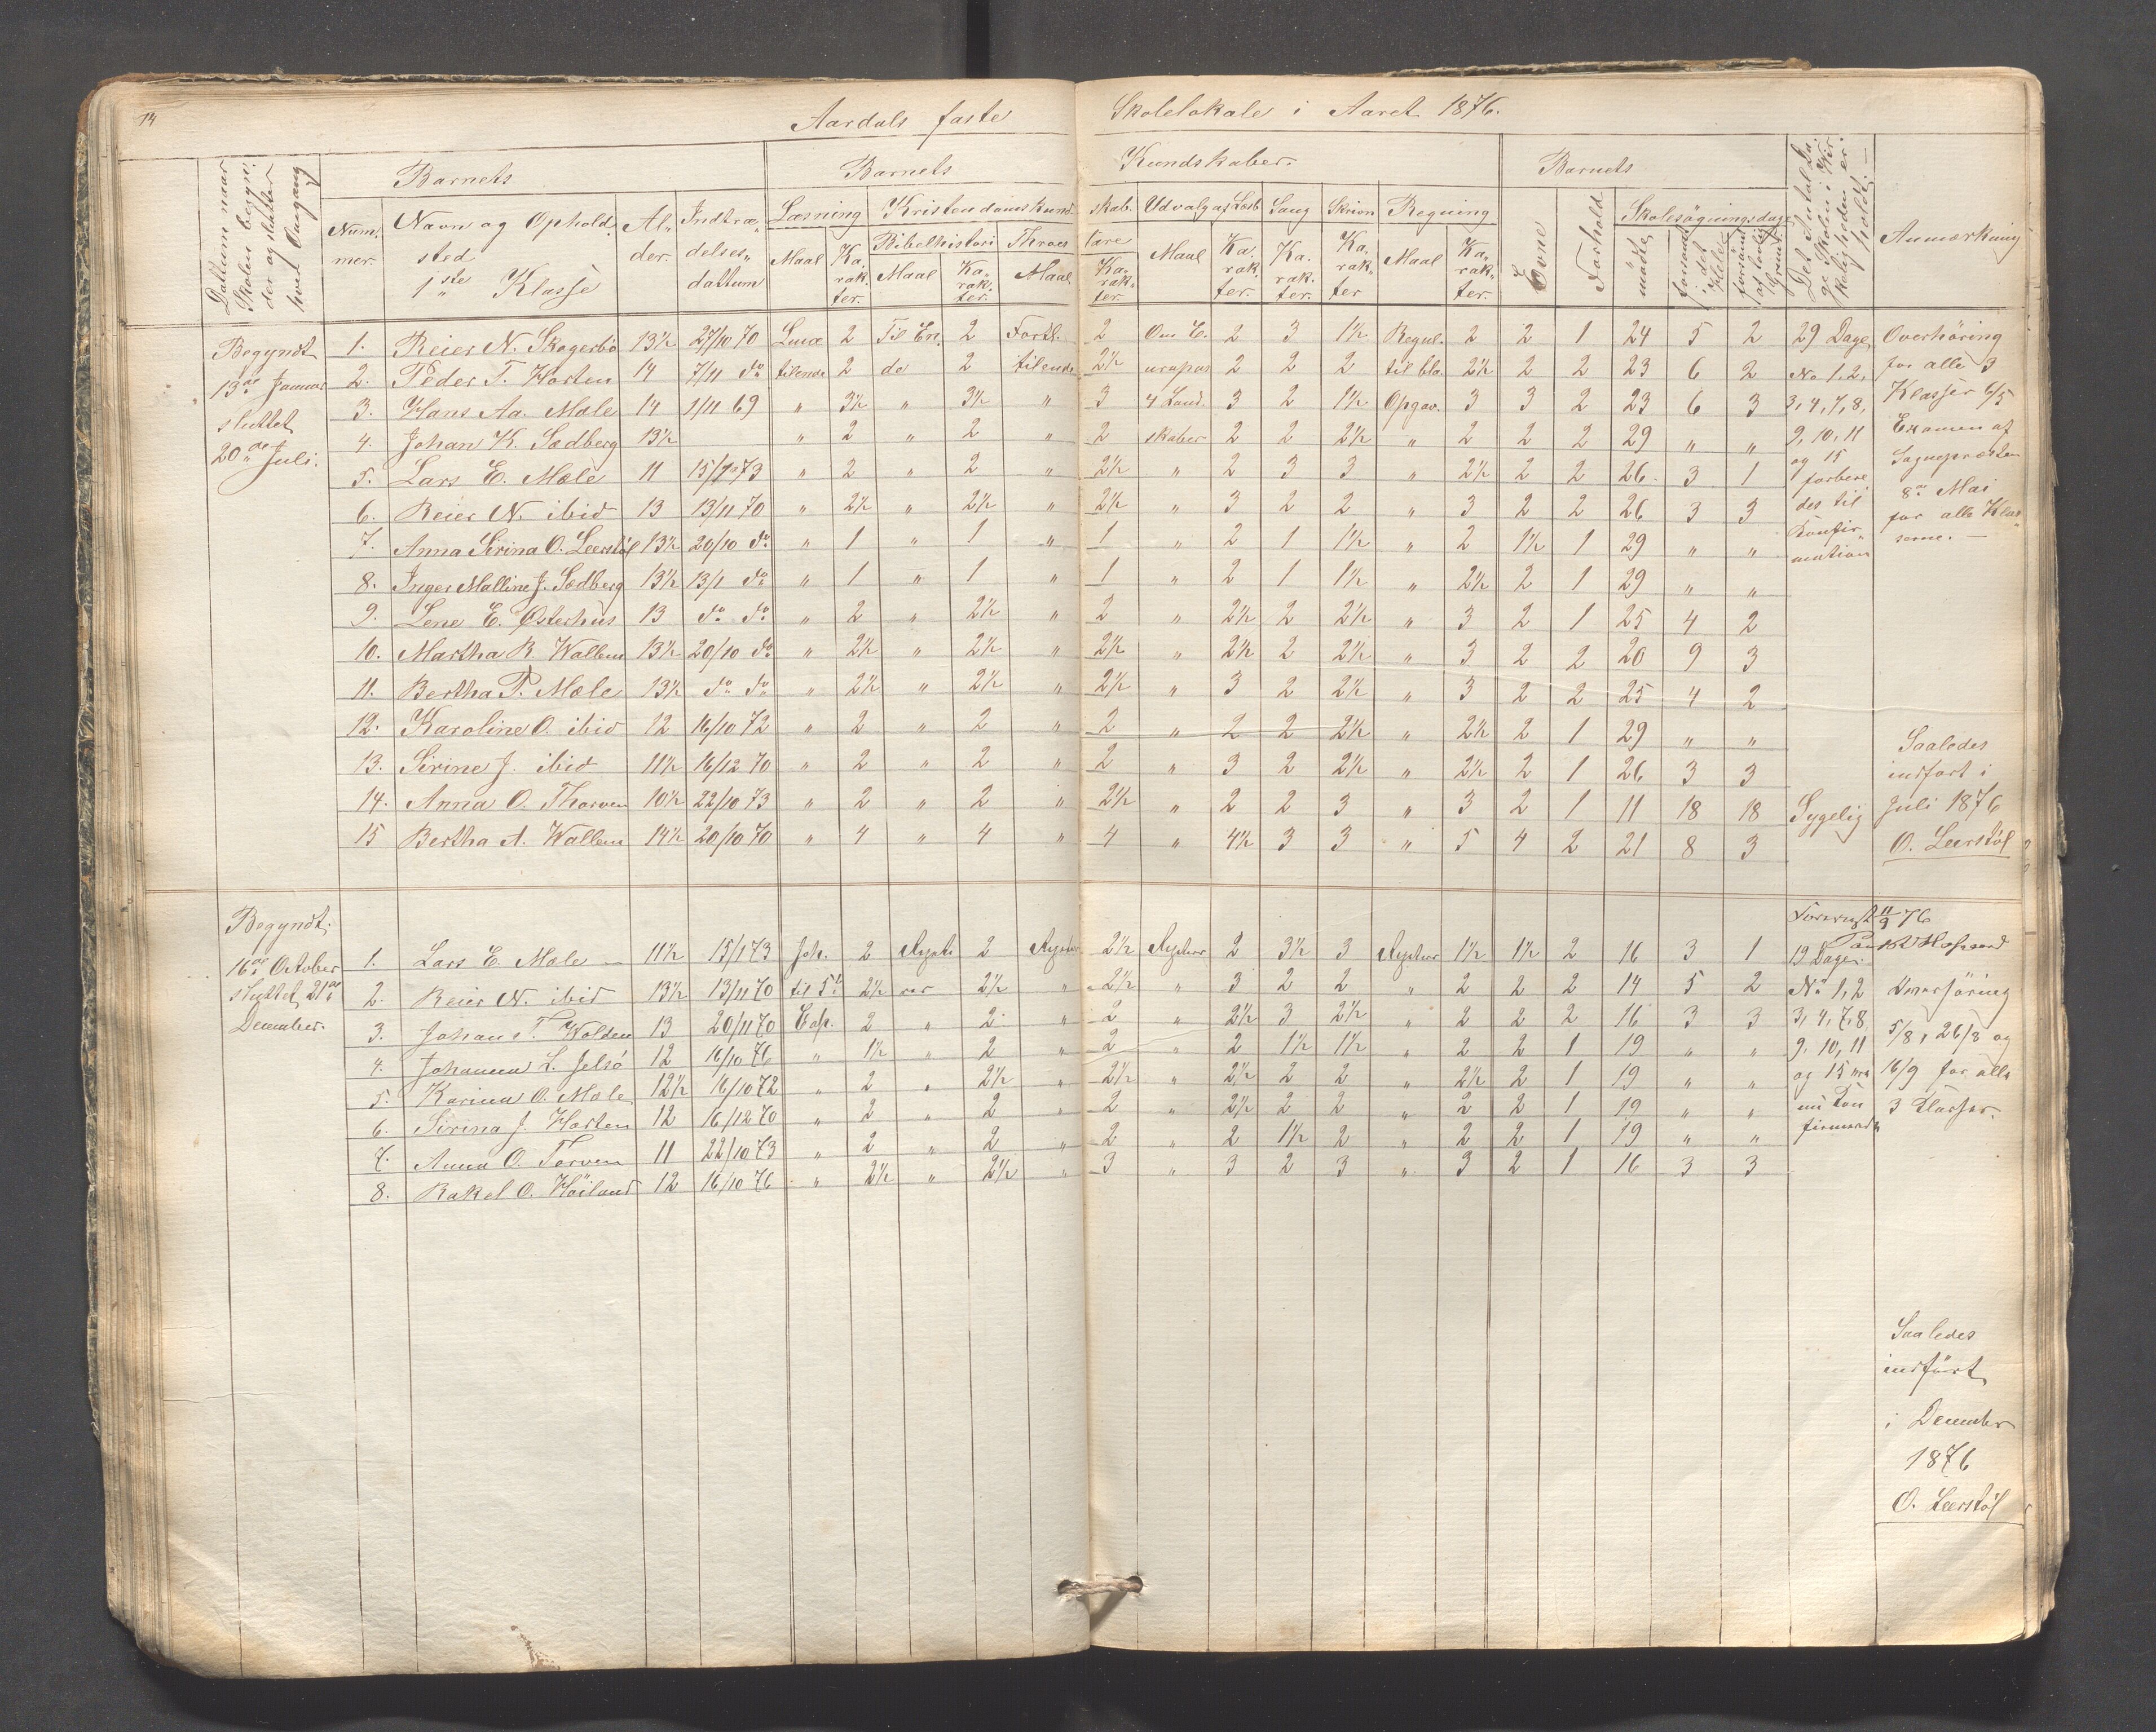 14
Aardals faste Skolelokale i Aaret 1876.
Dattum naar Skolen begyn: der og slutter hver Omgang
Barnets
Barnets Kundskaber.
Barnets
Det Antal Da: ge Skolen i Vir: keligheden er: holdt.
Anmærkning
Num: mer.
Navn og Ophold: sted
1ste Klasse
Al: der.
Indtræ: delses: dattum
Læsning
Kristendomskund: skab.
Udvalg af Læsb.
Sang
Skrivn
Regning
Evne
Forhold
Skolesögningsdage
Maal Ka: rak: ter.
Bibelhistori
Maal Ka: rak: ter.
Troes lære
Maal Ka: rak: ter.
Maal Ka: rak: ter.
Ka: rak: ter.
Ka: rak: ter
Maal Ka: rak: ter.
mödte
forsömt i det Hele
forsömt af lovlig Grund.
Begyndt
13de Januar
sluttet
20de Juli.
1. Reier N. Skogerbö 13½ 27/10 70 2 Til En. 2 Fortl. 2 Om E. 2 3 1½ Regul. 2 2 1 24 5 2 29 Dage
2. Peder T. Horten 14 7/11 do tilende 2 do 2 tilende 2½ uropas 2 2 2 til bla. 2½ 2 2 23 6 2 No 1, 2,
3. Hans Aa. Mæle 14 1/11 69 " 3½ " 3½ " 3 4 Land. 3 2 1½ Opgav. 3 3 2 23 6 3 3, 4, 7, 8,
4. Johan K. Sædberg 13½ " 2 " 2 " 2 skaber 2 2 2½ " 2 2 2 29 " " 9, 10, 11
5. Lars E. Mæle 11 15/1 73 " 2 " 2 " 2½ " 2 3 3 " 2½ 2 2 26 3 1 og 15
6. Reier N. ibid 13 13/11 70 " 2½ " 2½ " 2½ " 3 2 2 " 3 2 2 26 3 3 forbere
7. Anna Sirina O. Leerstöl 13½ 20/10 do " 1 " 1 " 1 " 2 1 1½ " 2 1½ 1 29 " " des til
8. Inger Malline J. Sædberg 13½ 13/1 do " 1 " 1 " 1 " 2 1 1½ " 2½ 2 1 29 " " Konfir: mation
9. Lene E. Østerhus 13 do do " 2 " 2½ " 2 " 2½ 2 2½ " 3 2 1 25 4 2
10. Martha R. Wallem 13½ 20/10 do " 2½ " 2½ " 2½ " 2½ 2 2½ " 3 2 2 20 9 3
11. Bertha P. Mæle 13½ do do " 2½ " 2½ " 2½ " 3 2 2½ " 3 2 2 25 4 2
12. Karoline O. ibid 12 16/10 72 " 2 " 2 " 2 " 2 2 2½ " 2½ 2 1 29 " "
13. Sirine J. ibid 11½ 16/12 70 " 2 " 2 " 2 " 3 2 2½ " 2½ 2 1 26 3 3
14. Anna O. Thorven 10½ 22/10 73 " 2 " 2 " 2½ " 2 2 3 " 3 2 1 11 18 18 Sygelig
15 Bertha A. Wallem 14½ 20/10 70 " 4 " 4 " 4 " 4½ 3 3 " 5 4 2 21 8 3
Overhöring
for alle 3
Klasser 6/5
Examen af
Sognepræsten
8de Mai
for alle Klas:
serne.
Saaledes
indfört i
Juli 1876
O. Leerstöl
Begyndt
16de October
sluttet 21de
December.
1. Lars E. Mæle 11½ 15/1 73 Joh. 2 2 2½ 2 3½ 3 1½ 1½ 2 16 3 1 19 Dage.
2. Reier N. ibid 13½ 13/11 70 til 5te 2½ 2½ " 2½ " 3 2 2 " 2 2 2 14 5 2 No 1, 2
3. Johan T. Wolden 13 20/11 70 Cap. 2 " 2 " 2 " 2½ 3 2½ " 2 2 2 16 3 3 3, 4, 7, 8,
4. Johanna L. Jelsö 12 16/10 76 " 1½ " 2 " 2 " 2 1½ 1½ " 2 2 1 19 " " 9, 10, 11
5. Karina O. Mæle 12½ 16/10 72 " 2 " 2½ " 2½ " 2½ 2 2 " 2½ 2 1 19 " " og 15 ere
6. Sirina J. Horten 12 16/12 70 " 2 " 2 " 2 " 2½ 2 2 " 2 2 1 19 " " nu Kon
7. Anna O. Torven 11 22/10 73 " 2 " 2 " 2 " 2 1½ 2 " 2 2 1 19 " " firmerede
8. Rakel O. Höiland 12 16/10 76 " 2½ " 2½ " 3 " 3 2 3 " 3 2 1 16 3 3
11/9 76
Overhöring
5/8, 26/8 og
16/9 for alle
3 Klasser.
Saaledes
indfört
i December
1876
O. Leerstöl